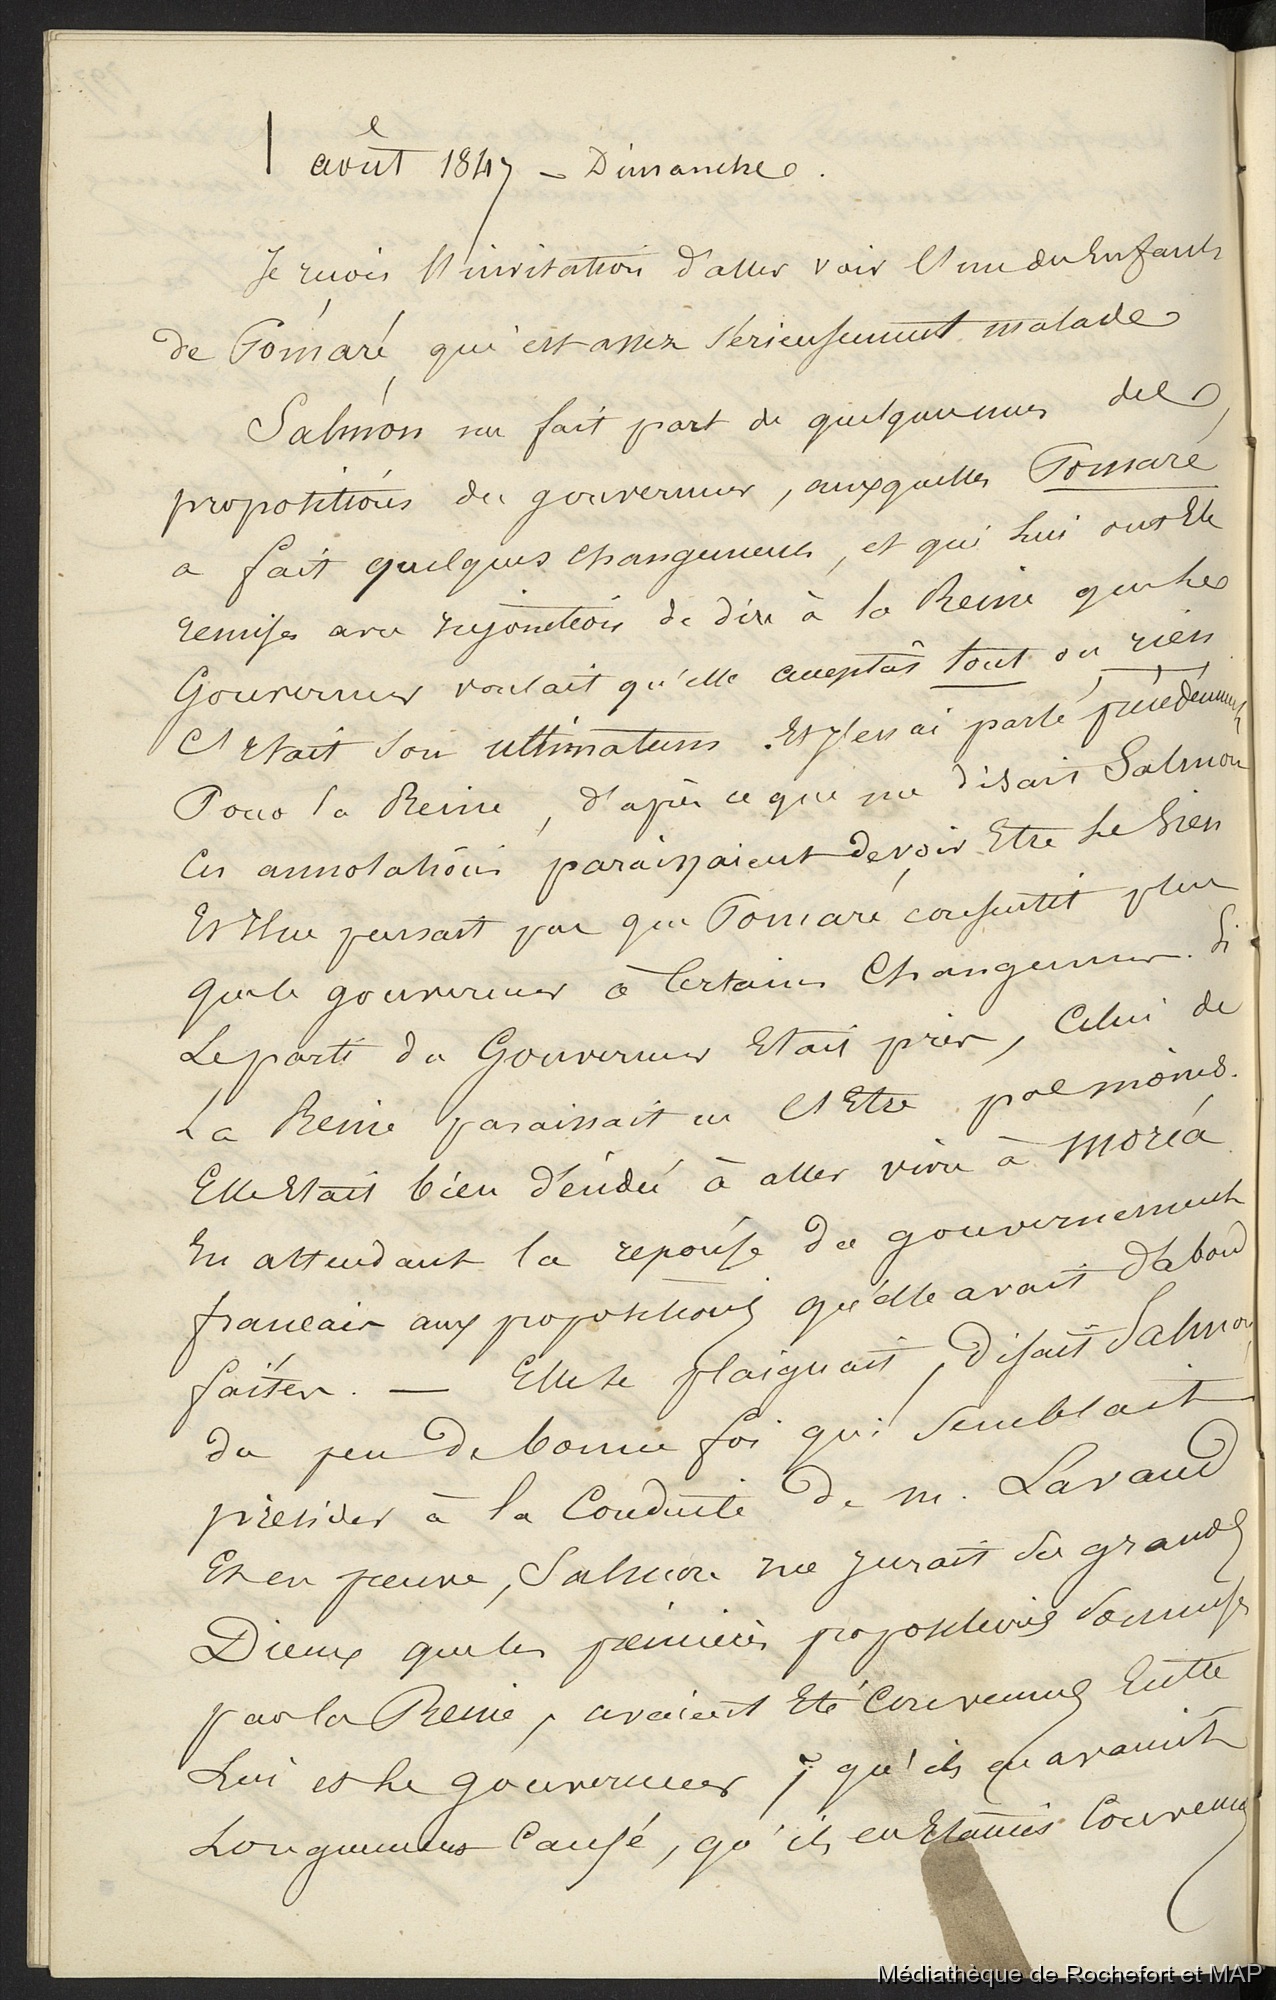 1e août 1847 – Dimanche.
Je reçois l'invitation d'aller voir l'un des Enfants
de Pomaré, qui est assez sérieusement malade
Salmon me fait part de quelques unes des
propositions du gouverneur, auxquelles Pomaré
a fait quelques changements, et qui lui ont Eté
remises avec injonction de dire à la Reine que le
Gouverneur voulait qu'elle acceptât tout ou rien
C'Etait son ultimatum. Et j'en ai parlé précédemment
Pour la Reine, d'après ce que me disait Salmon
Ces annotations paraissaient devoir Etre le sien
Et Il ne pensait pas que Pomaré consentit plus
que le gouverneur à Certains Changemens. Si
Le parti du Gouverneur Etait pris, Celui de
La Reine paraissait ne l'Etre pas moins.
Elle Etait bien décidé à aller vivre à Moréa
En attendant la reponse du gouvernement
francais aux propositions qu'elle avait d'abord
faites. — Elle se plaignait, disait Salmon,
du peu de bonne foi qui Semblait
présider à la Conduite de M. Lavaud
Et en preuve, Salmon me jurait ses grands
Dieux que les premières propositions soumises
par la Reine, avaient Eté Convenues Entre
Lui et le gouverneur ; qu'ils en avaient
Longuement Causé, qu'ils en Etaient Convenus
Médiathèque de Rochefort et MAP